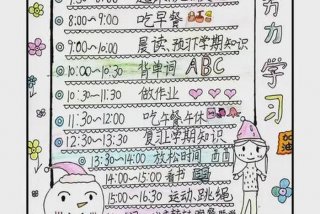 8:00~9:00 吃早餐
9:00~10:00 晨读,预打学期知识
10:00~10:30 背单词 ABC
10:30~11:30 做作业
11:30~12:00 吃午餐午休
12:30~13:30 复习学期知识
13:30~14:00 放松时间
14:00~15:00 看书
15:00~16:00 运动、跳绳
力学习
加油